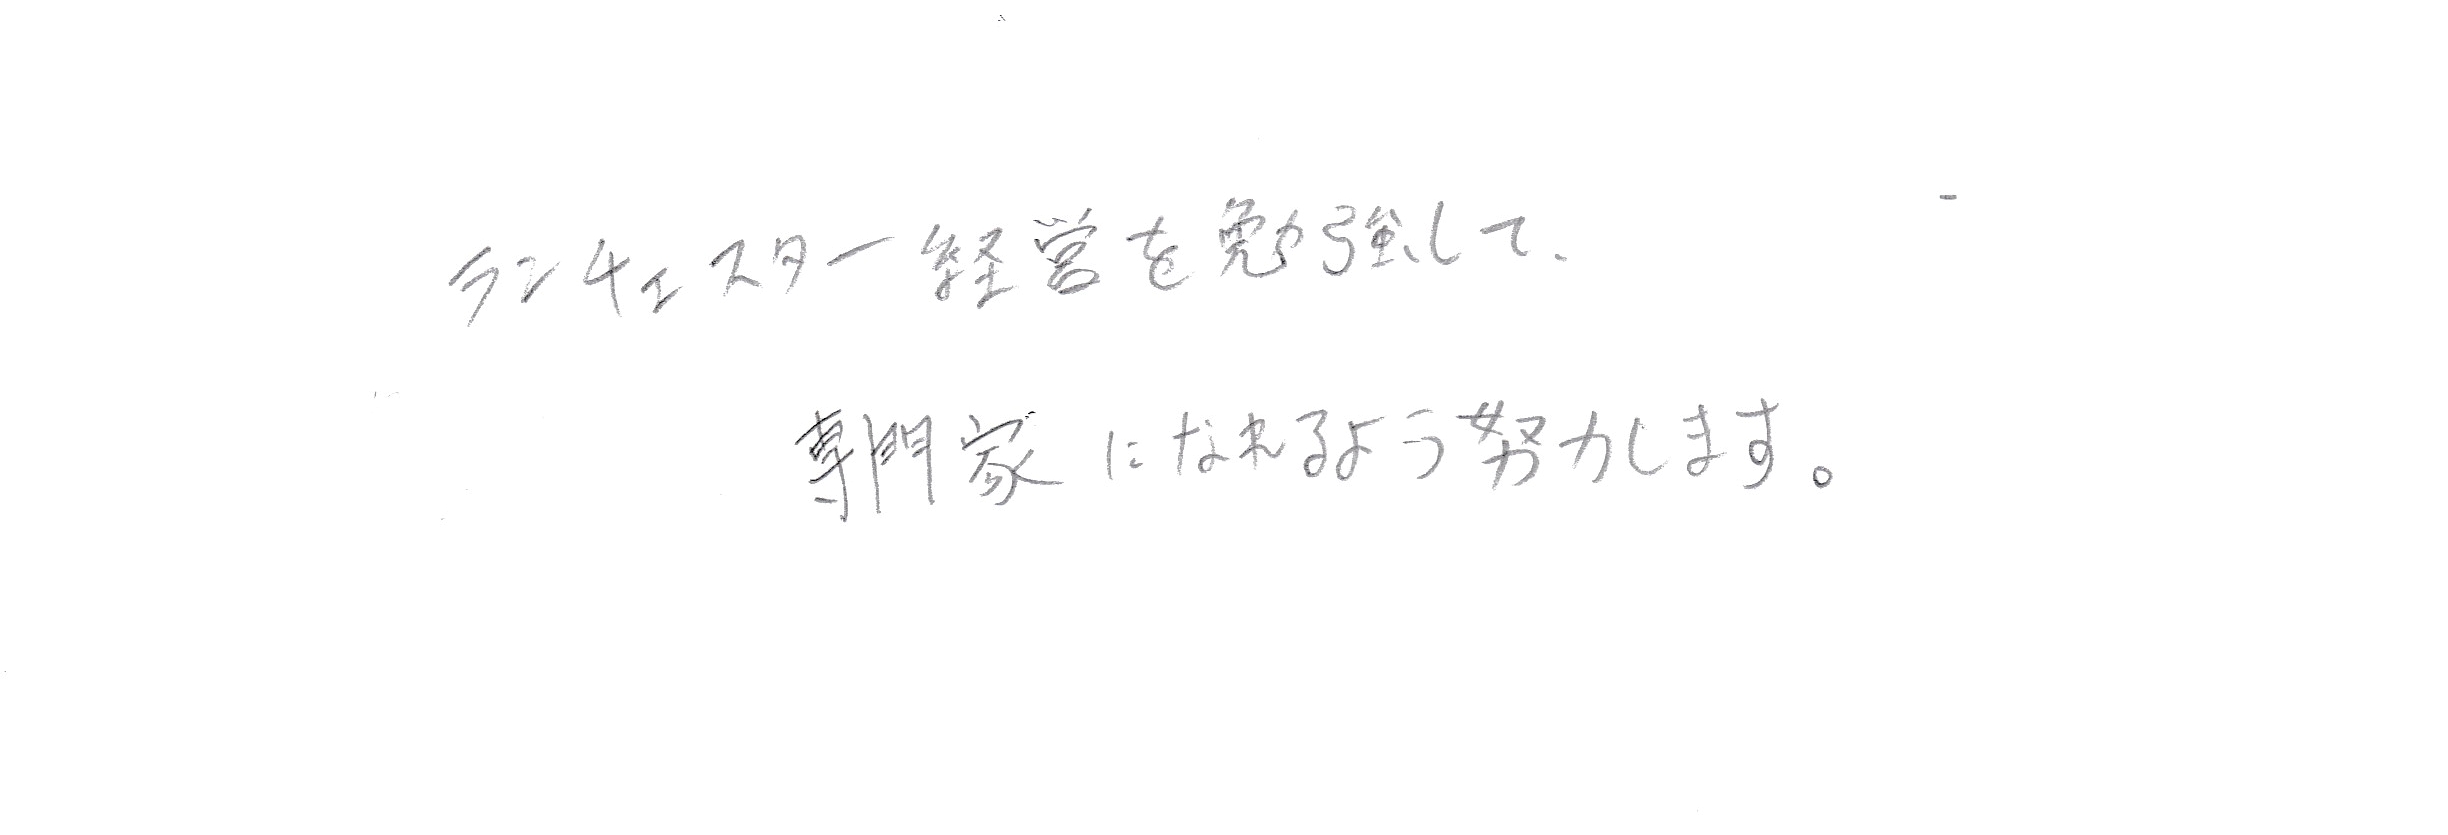 ランチェスター経営を勉強して、
専門家になれるよう努力します。